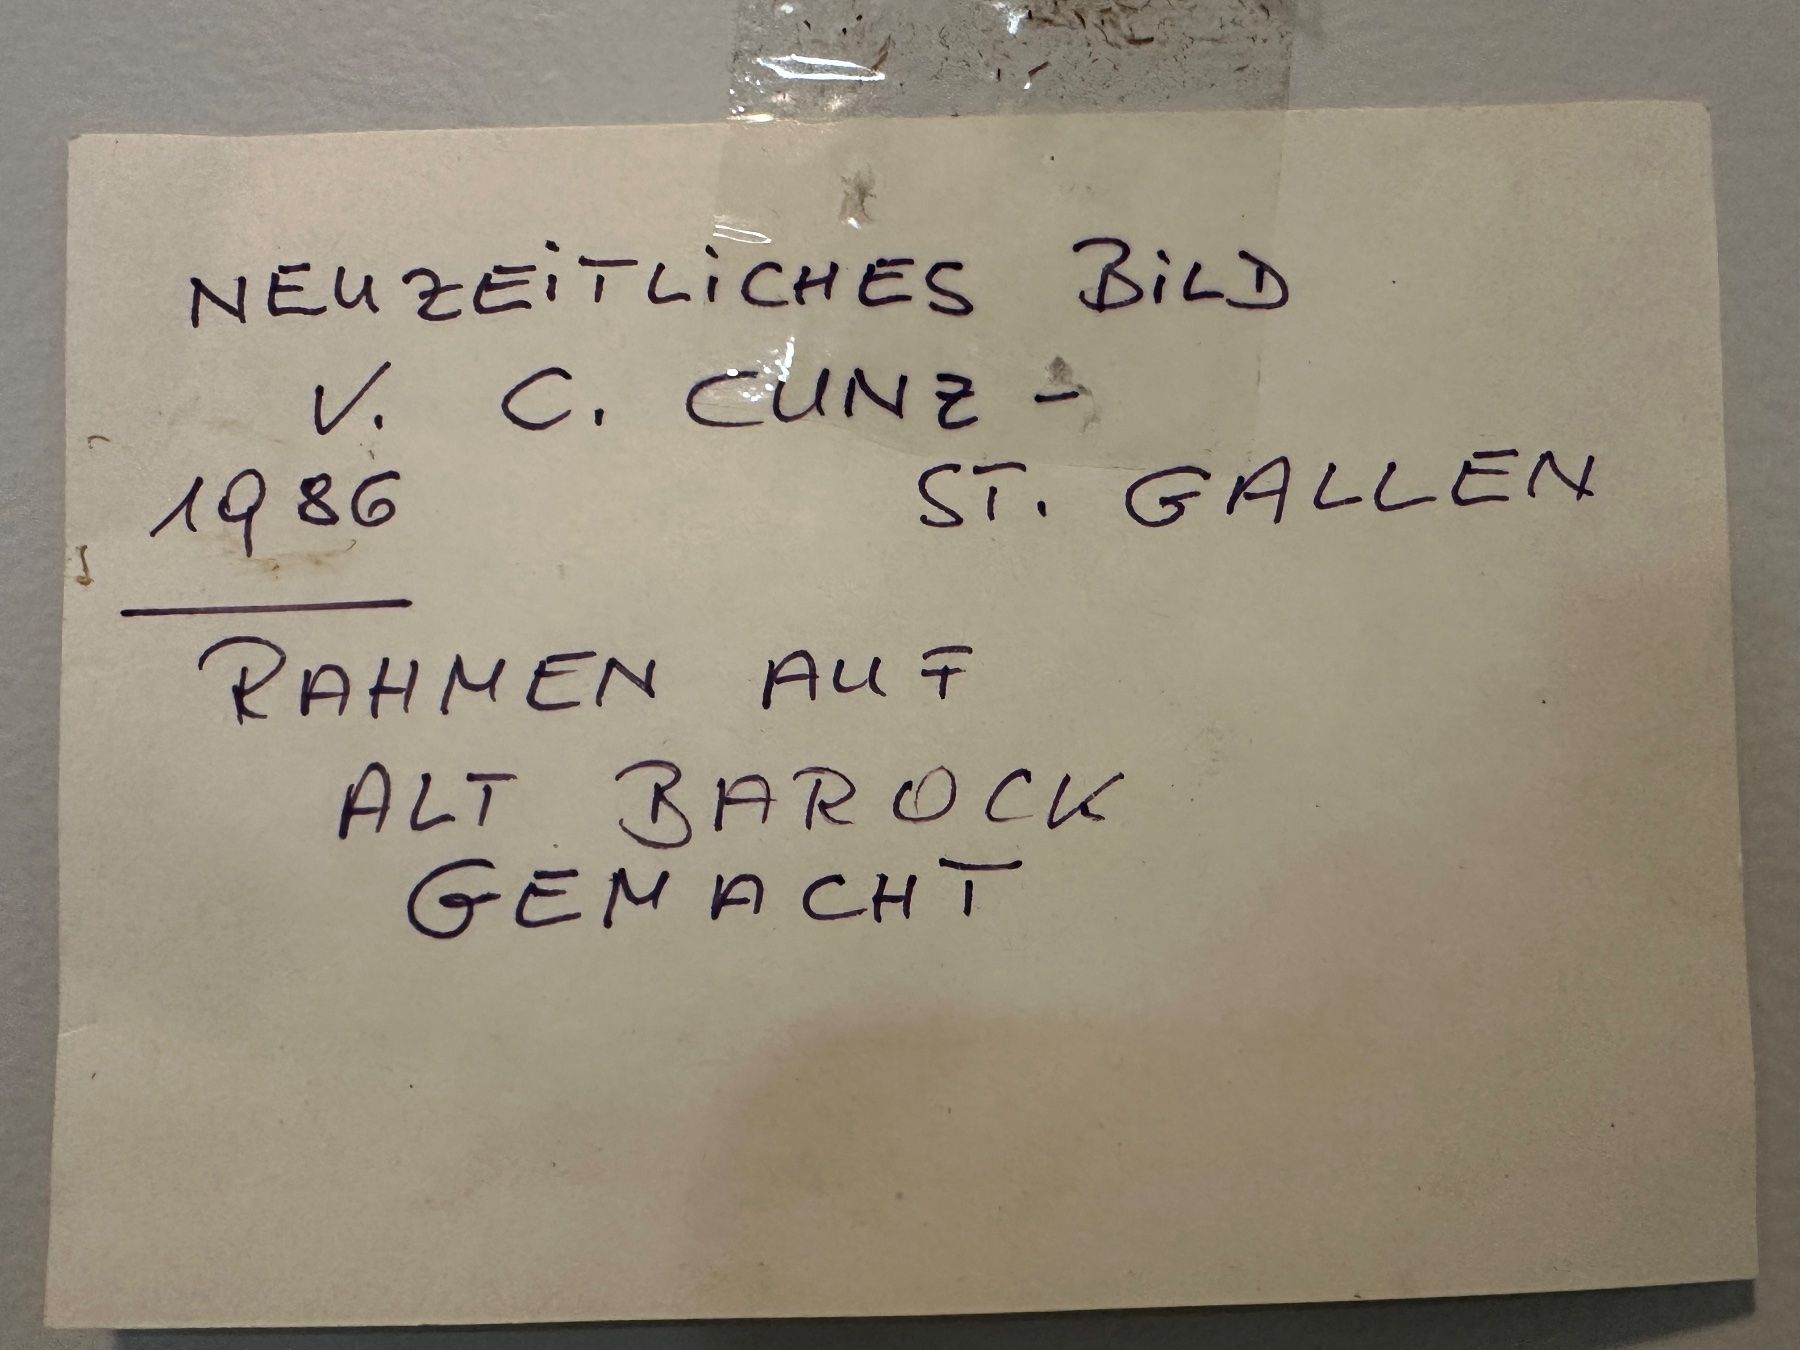 NEUZEITLICHES BILD
V. C. CUNZ -
1986 ST. GALLEN
RAHMEN AUF
ALT BAROCK
GEMACHT